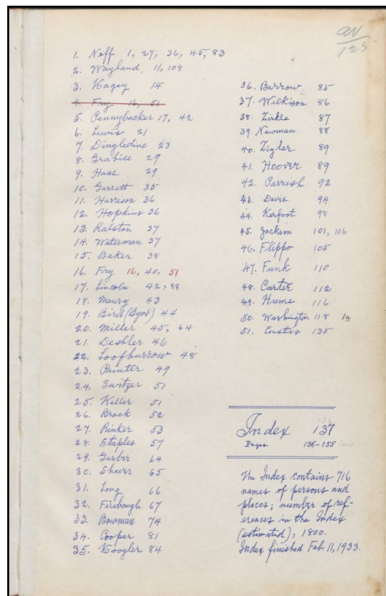 1. Neff 1, 27, 36, 45, 83
2. Wayland. 11, 108
3. Hagey 14
4. Fry 16, 51
5. Pennybacker 17, 42
6. Lewis 21
7 Dingledine 23
8. Grabill 29
9. Haas 29
10. Garrett 35
11. Harrison 36
12. Hopkins 36
13. Ralston 37
14. Waterman 37
15. Baker 38
16. Fry 16, 40, 51
17. Lincoln 42, 88
18. Maury 43
19. Bird (Byrd) 44
20. Miller 45, 64
21. Deshler 46
22. Loofburrow 48
23. Painter 49
24. Switzer 51
25. Keller 51
26. Brock 52
27. Rinker 53
28. Staples 57
29. Garber 64
30. Shaver 65
31. Long 66
32. Firebaugh 67
33. Bowman 74
34. Cooper 81
35. Koogler 84
36. Barrow 85
37. Wilkison 86
38. Zirkle 87
39 Newman 88
40. Zigler 89
41. Hoover 89
42. Parrish 92
43. Davis 94
44. Kerfoot 98
45. Jackson 101, 106
46. Flippo 105
47. Funk 110
48. Carter 112
49. Hume 116
50. Washington 118
51. Custis 135
Index 137
Pages 136-155
The Index contains 716
names of persons and
places; number of ref-
erences in the Index
(estimated), 1800.
Index finished Feb. 11, 1933.